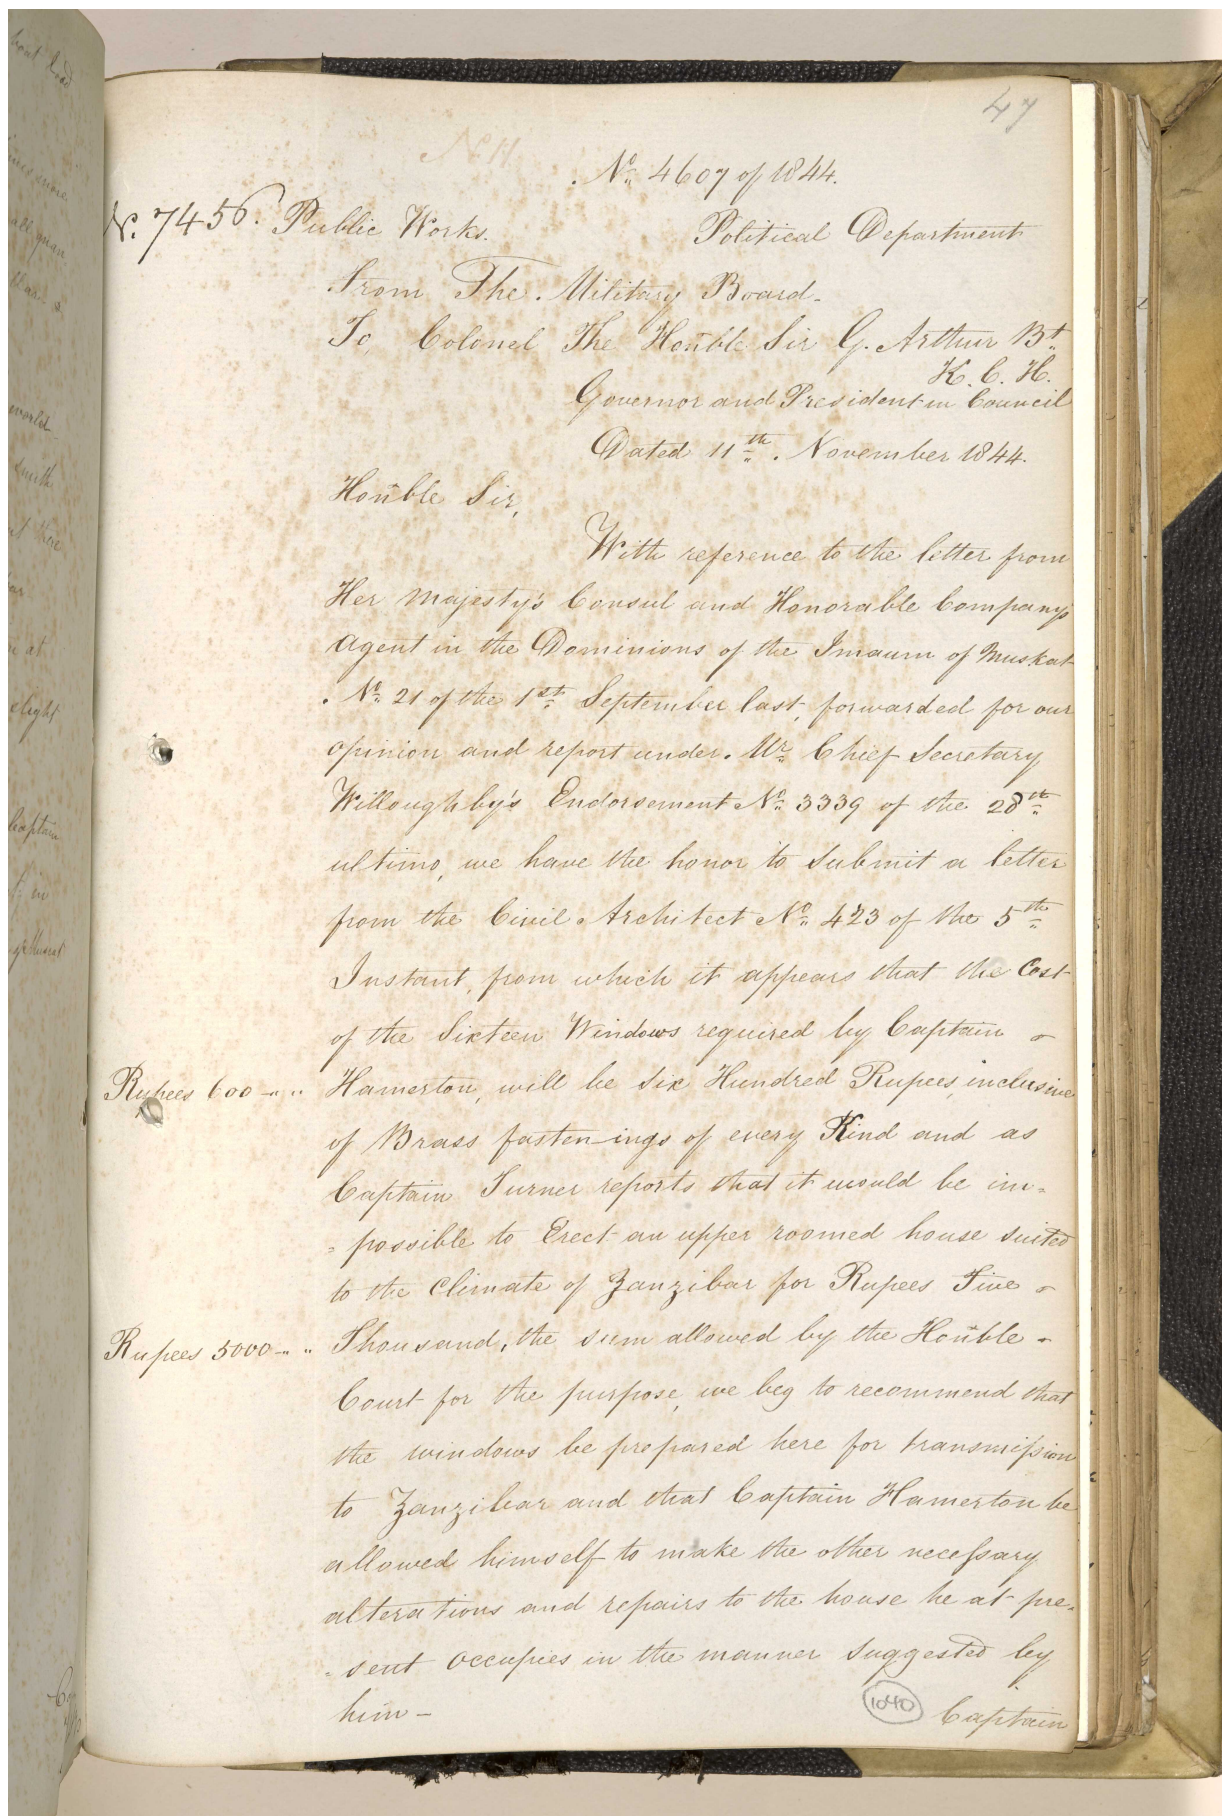 47
No. 4607 of 1844.
No. 7456. Public Works. Political Department
From The Military Board.
To, Colonel The Hon'ble Sir G. Arthur Bt.
K. C. H.
Governor and President in Council
Dated 11th. November 1844.
Hon'ble Sir,
With reference to the letter from
Her Majesty's Consul and Honorable Company's
Agent in the Dominions of the Imaum of Muskat
No. 21 of the 1st September last, forwarded for our
opinion and report under Mr. Chief Secretary
Willoughby's Endorsement No. 3339 of the 28th
ultimo, we have the honor to submit a letter
from the Civil Architect No. 423 of the 5th
Instant, from which it appears that the Cost
of the Sixteen Windows required by Captain -
Rupees 600 -"" Hamerton, will be Six Hundred Rupees, inclusive
of Brass fastenings of every Kind and as
Captain Turner reports that it would be im=
=possible to Erect an upper roomed house suited
to the climate of Zanzibar for Rupees Five -
Rupees 5000 -"" Thousand, the sum allowed by the Hon'ble -
Court for the purpose, we beg to recommend that
the windows be prepared here for transmission
to Zanzibar and that Captain Hamerton be
allowed himself to make the other necessary
alterations and repairs to the house he at pre=
=sent occupies in the manner suggested by
him -
1040
Captain